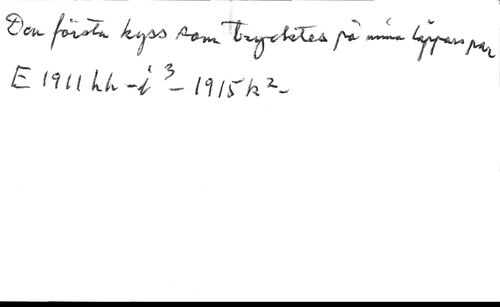 Den första kyss som trycktes på mina läppars par
E 1911 hh - i 3 - 1915 k 2 -